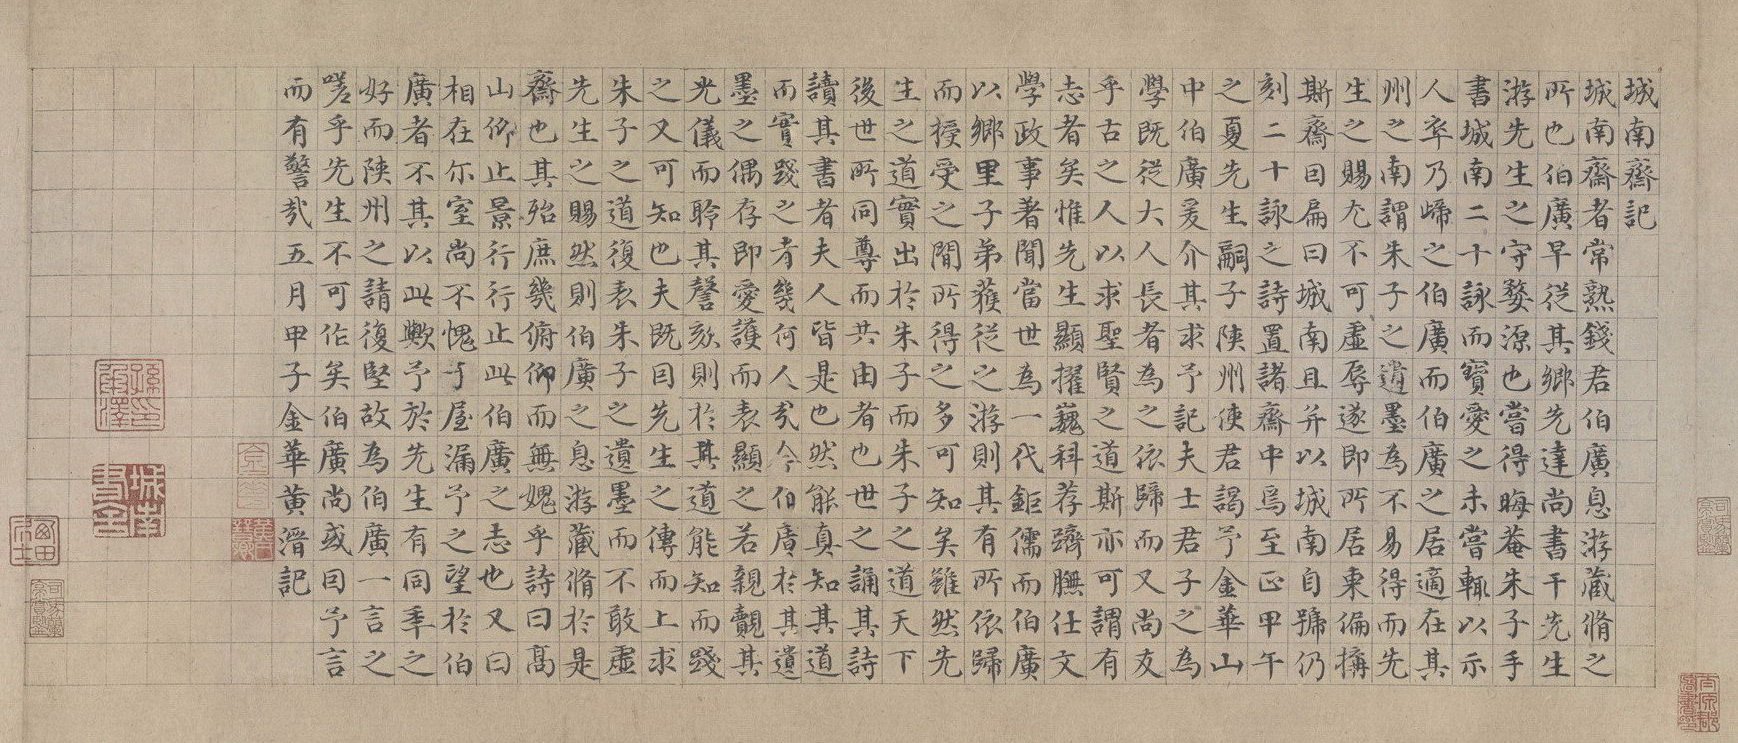 城南齋記
城南齋者常熟錢君伯廣息游藏脩之
所也伯廣早從其鄉先達尚書干先生
游先生之守婺源也嘗得晦菴朱子手
書城南二十詠而寶愛之未嘗輒以示
人卒乃歸之伯廣而伯廣之居適在其
州之南謂朱子之遺墨為不易得而先
生之賜尤不可虛辱遂即所居東偏搆
斯齋因扁曰城南且并以城南自號仍
刻二十詠之詩置諸齋中焉至正甲午
之夏先生嗣子陝州使君謁予金華山
中伯廣爰介其求予記夫士君子之為
學既從大人長者為之依歸而又尚友
乎古之人以求聖賢之道斯亦可謂有
志者矣惟先生顯擢巍科荐躋膴仕文
學政事著聞當世為一代鉅儒而伯廣
以鄉里子弟獲從之游則其有所依歸
而授受之間所得之多可知矣雖然先
生之道實出於朱子而朱子之道天下
後世所同尊而共由者也世之誦其詩
讀其書者夫人皆是也然能真知其道
而實踐之者幾何人哉今伯廣於其遺
墨之偶存即愛護而表顯之若親覿其
光儀而聆其謦欬則於其道能知而踐
之又可知也夫既因先生之傳而上求
朱子之道復表朱子之遺墨而不敢虛
先生之賜然則伯廣之息游藏脩於是
齋也其殆庶幾俯仰而無媿乎詩曰高
山仰止景行行止此伯廣之志也又曰
相在尔室尚不愧于屋漏予之望於伯
廣者不其以此歟予於先生有同年之
好而陝州之請復堅故為伯廣一言之
嗟乎先生不可作矣伯廣尚或因予言
而有警哉五月甲子金華黄溍記